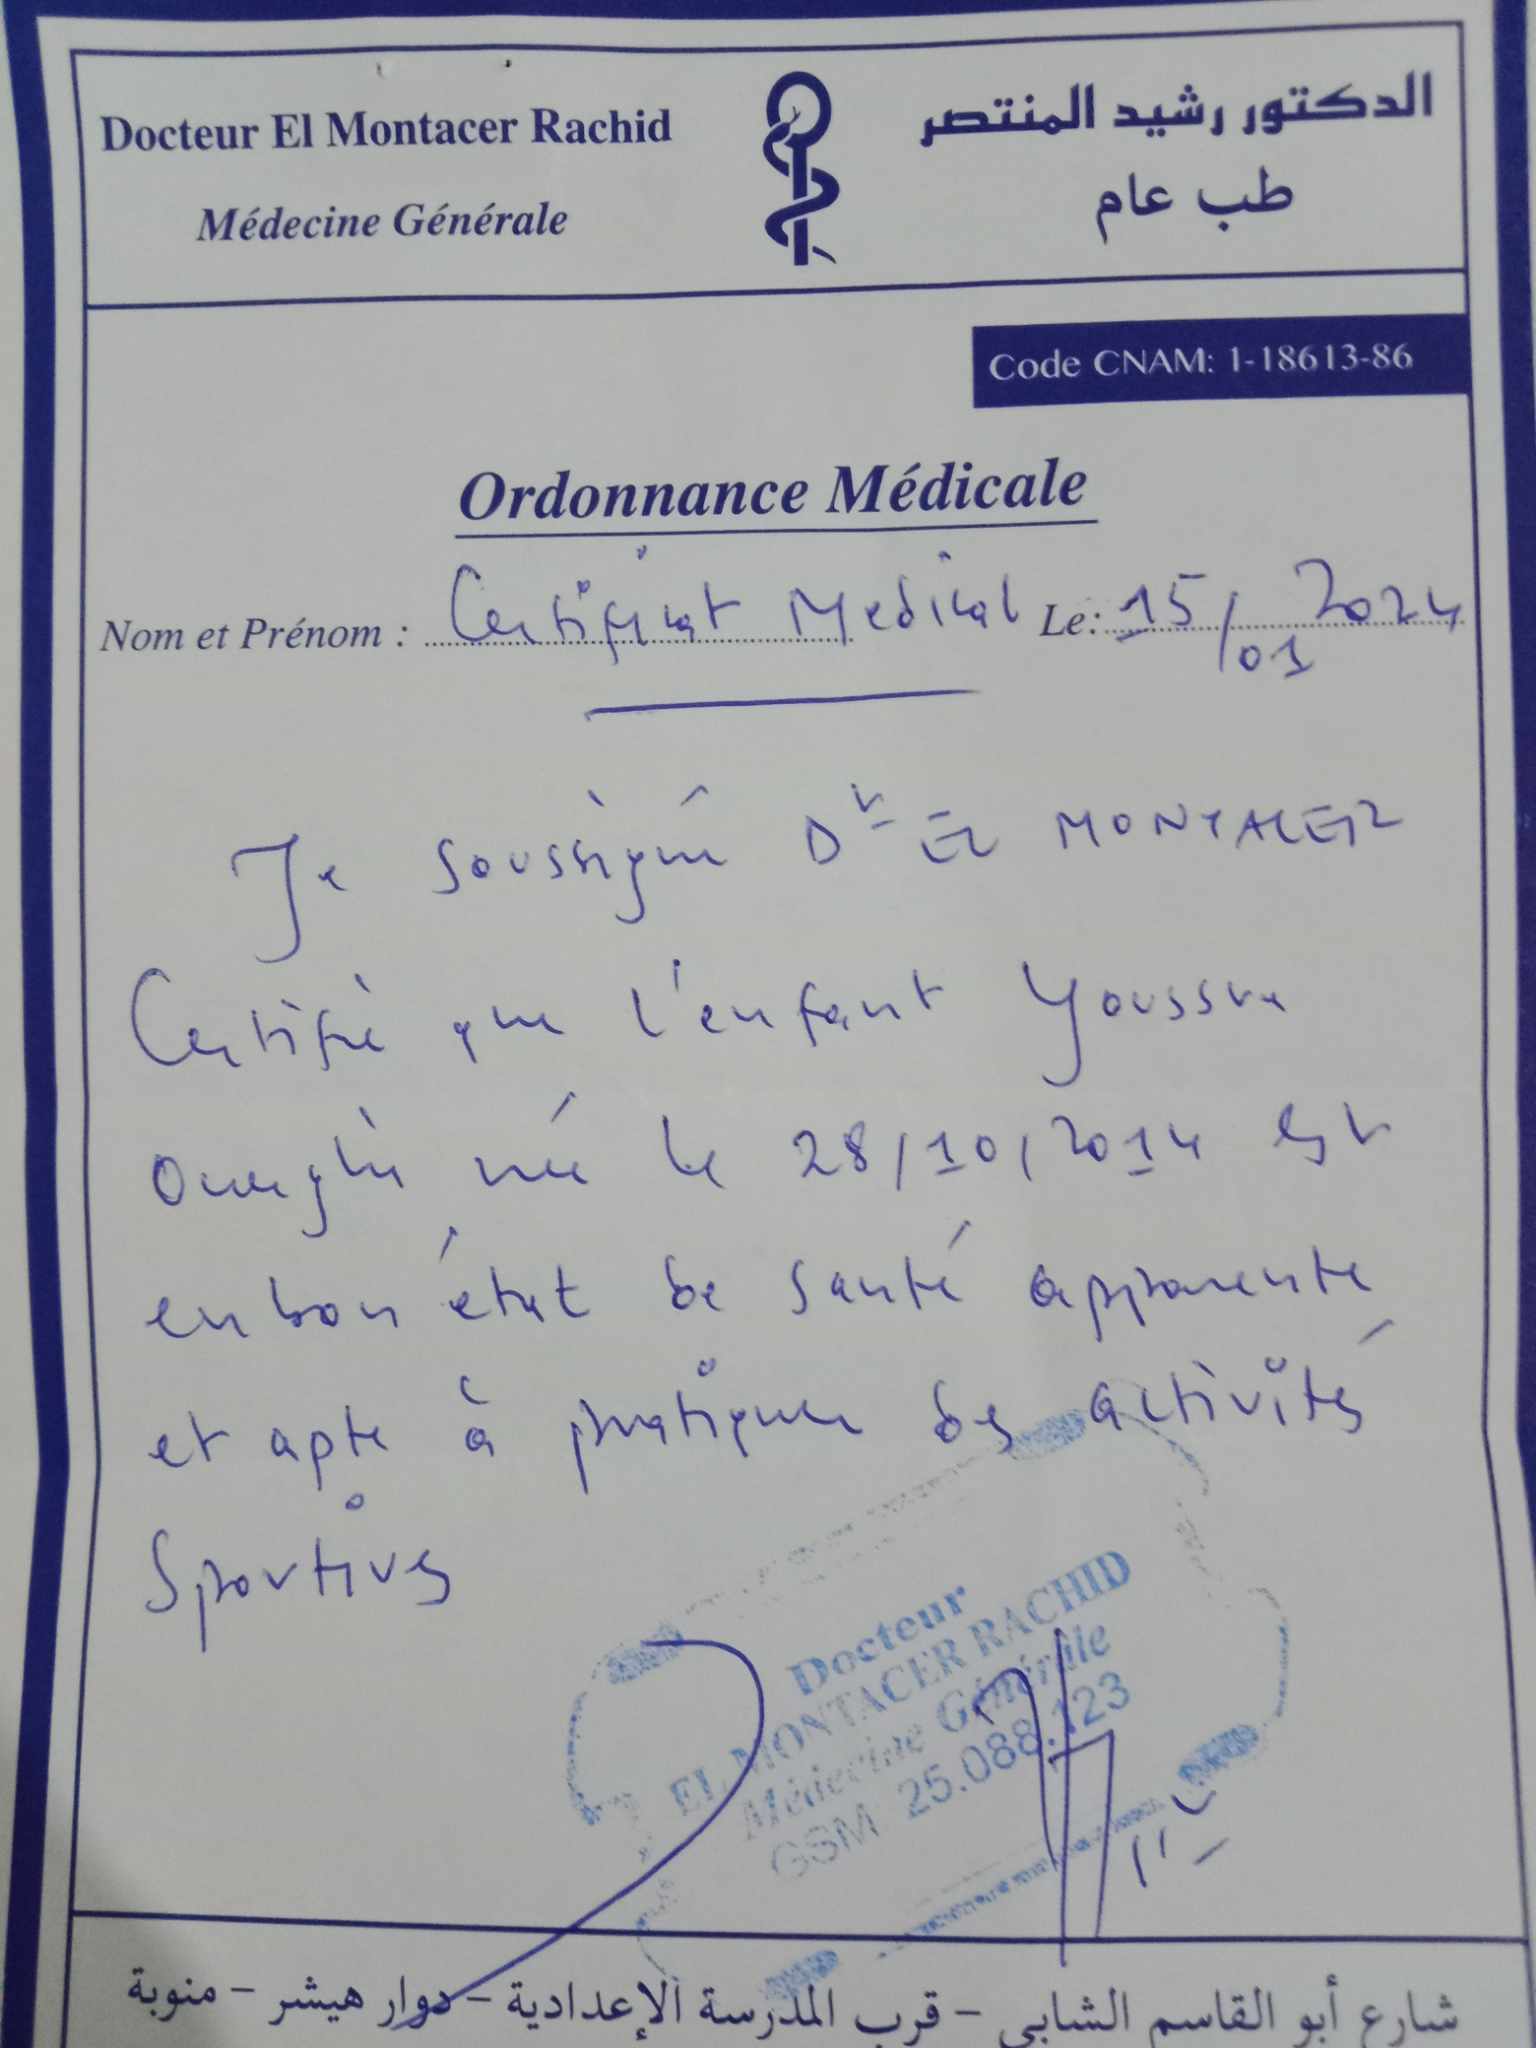 Docteur El Montacer Rachid
Médecine Générale
الدكتور رشيد المنتصر
طب عام
Code CNAM: 1-18613-86
Ordonnance Médicale
Nom et Prénom : Certificat Medical Le: 15/01 2024
Je soussigné Dr EL MONTACER
Certifie que l'enfant Youssra
Oueghi née le 28/10/2014 est
en bon état de santé apparente
et apte à pratiquer des activités
Sportives
Docteur
EL MONTACER RACHID
Médecine Générale
GSM 25.088.123
شارع أبو القاسم الشابي - قرب المدرسة الإعدادية - دوار هيشر - منوبة